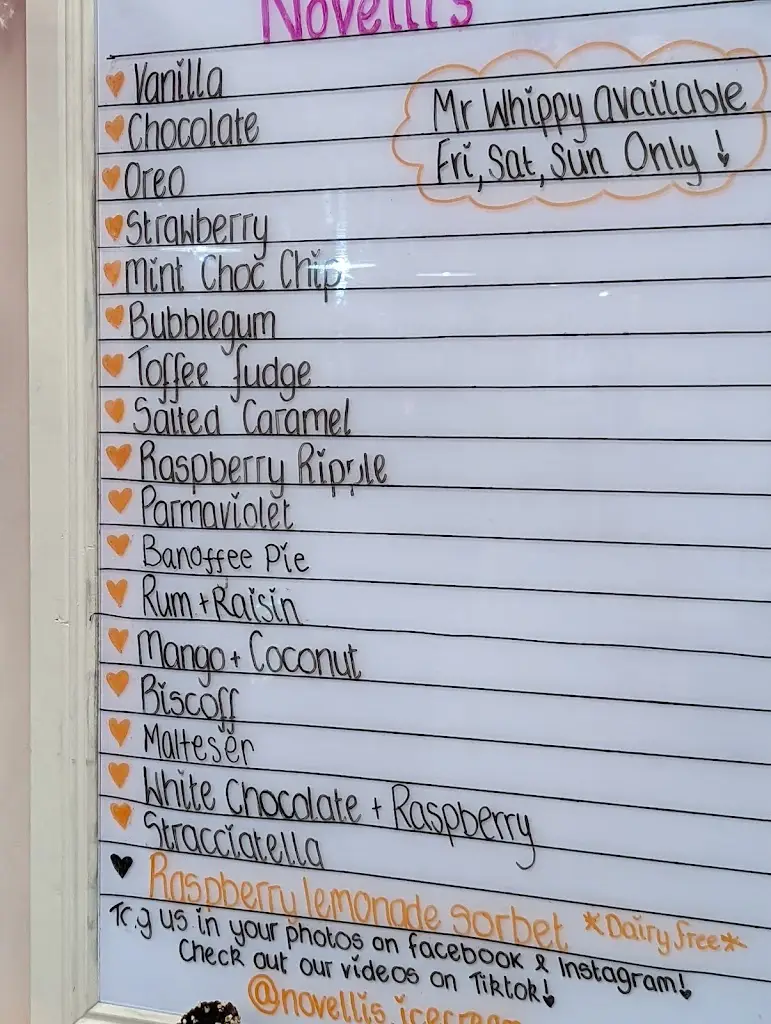 Novelli's
Vanilla
Mr Whippy available
Chocolate
Fri, Sat, Sun Only!
Oreo
Strawberry
Mint Choc Chip
Bubblegum
Toffee fudge
Salted Caramel
Raspberry Ripple
Parmaviolet
Banoffee Pie
Rum + Raisin
Mango + Coconut
Biscoff
Malteser
White Chocolate + Raspberry
Stracciatella
Raspberry lemonade sorbet *Dairy free*
Tag us in your photos on facebook & Instagram!
Check out our videos on Tiktok!
@novellis.icecream